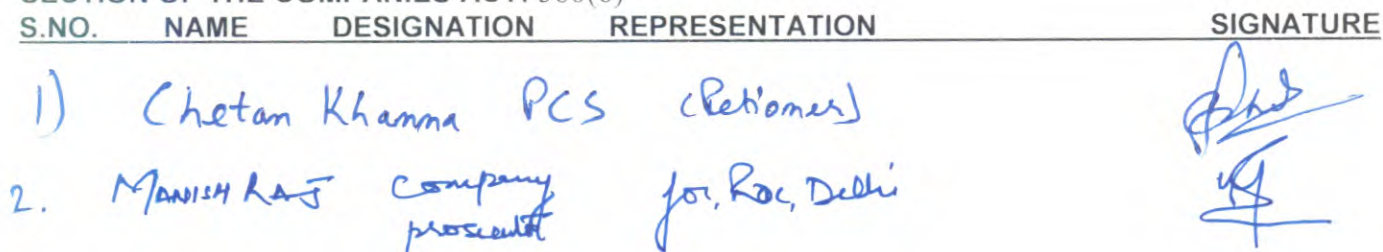 S.NO. NAME DESIGNATION REPRESENTATION SIGNATURE
1) Chetan Khanna PCS (Petioner)
2. MANISH RAJ company for, ROC, Delhi